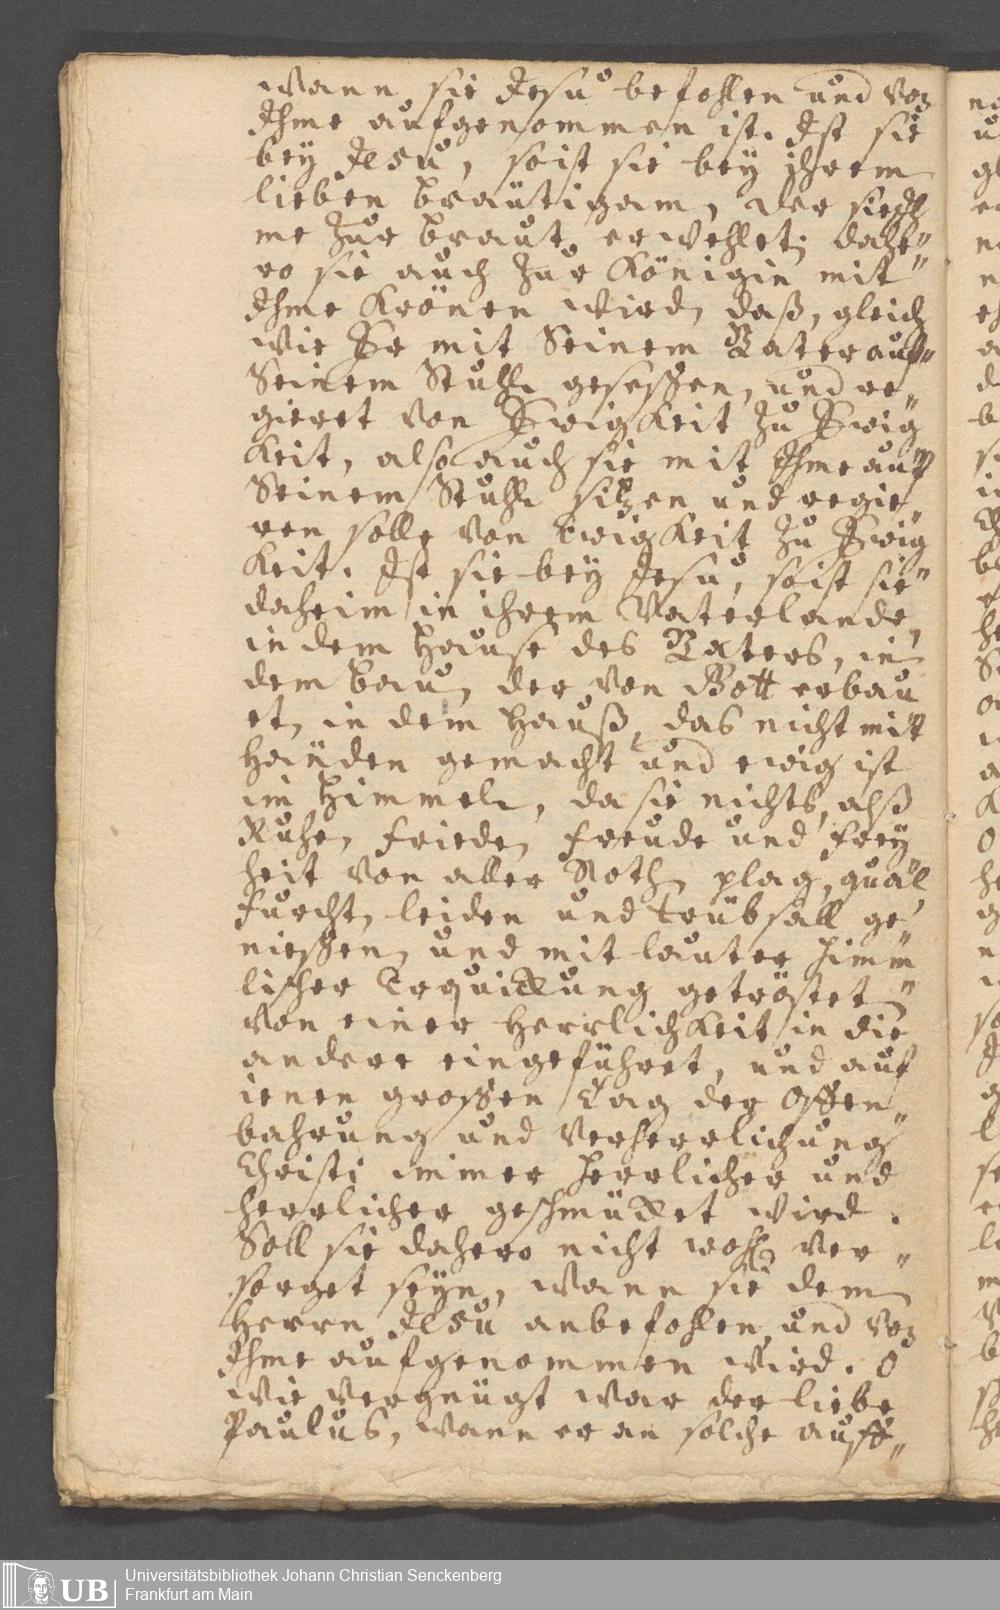 wann sie Jesu befohlen und von
Ihme aufgenommen ist. Ist sie
bey JEsu, so ist sie bey ihrem
lieben Bräutigam, der sie Ih
me zur Braut erwehlet; dahe„
ro sie auch zur Königin mit
Ihme Krönen wird, daß, gleich
wie Er mit Seinem Vater auf
Seinem Stuhl gesessen, und re„
gieret von Ewigkeit zu Ewig
keit, also auch sie mit Ihme auf
Seinem Stuhl sitzen und regie„
ren solle von Ewigkeit zu Ewig
keit. Ist sie bey Jesu, so ist sie
daheim in ihrem Vaterlande,
in dem Hause des Vaters, in
dem Bau, der von Gott erbau
et, in dem Hauß, das nicht mit
Händen gemacht und ewig ist
im Himmel, da sie nichts, alß
Ruhe, Friede, Freude und Frey
heit von aller Noth, plag, quaal
Furcht, leiden und Trübsall ge„
niessen, und mit lauter himm
lischer Erquickung getröstet
von einer Herrlichkeit in die
andere eingeführet, und auf
ienen grossen Tag der Offen„
bahrung und Verherrlichung
Christi immer herrlicher und
herrlicher geschmücket wird.
Soll sie dahero nicht wohl ver„
sorget seyn, wann sie dem
Herrn JEsu anbefohlen, und von
Ihme aufgenommen wird. O
wie vergnügt war der liebe
Paulus, wann er an solche auff„
Universitätsbibliothek Johann Christian Senckenberg
Frankfurt am Main
UB